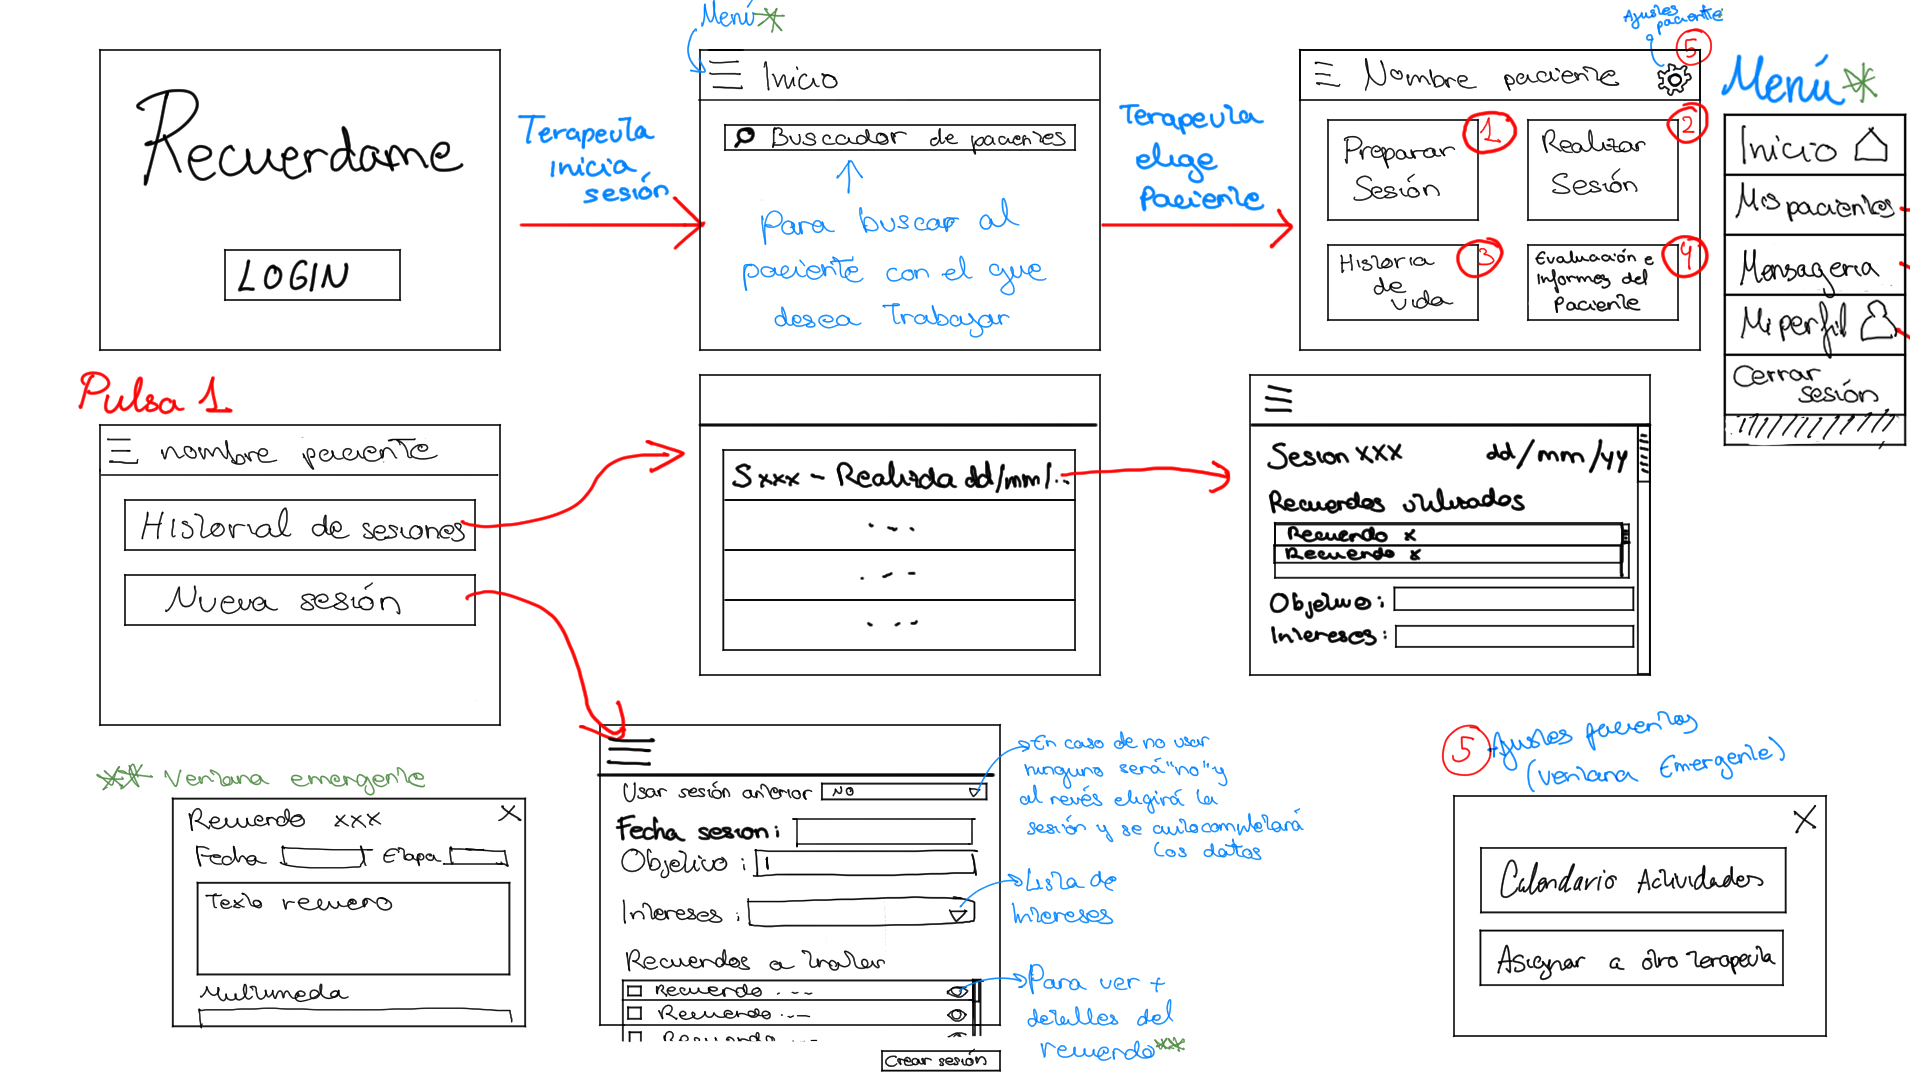 Menú*
Ajustes
paciente
5
Recuerdame
LOGIN
Terapeuta
inicia
sesión
Inicio
Buscador de pacientes
Para buscar al
paciente con el que
desea Trabajar
Terapeuta
elige
Paciente
Nombre paciente
Preparar
Sesión
1
Realizar
Sesión
2
Historia
de
vida
3
Evaluación e
Informes del
Paciente
4
Menú*
Inicio
Mis pacientes
Mensageria
Mi perfil
Cerrar
sesión
Pulsa 1
nombre paciente
Historial de sesiones
Nueva sesión
S xxx - Realizada dd/mm/..
...
...
...
Sesion XXX dd/mm/yy
Recuerdos utilizados
Recuerdo x
Recuerdo x
Objetivo:
Intereses:
** Ventana emergente
Recuerdo xxx X
Fecha Etapa
Texto recuero
Multimeda
Usar sesión anterior NO
Fecha sesion:
Objetivo:
Intereses:
Recuerdos a tratar
Recuerdo ...
Recuerdo ...
Recuerdo ...
Crear sesión
En caso de no usar
ninguno será "no" y
al revés eligirá la
sesión y se autocompletará
los datos
Lista de
Intereses
Para ver +
detalles del
recuerdo**
5 Ajustes pacientes
(Ventana Emergente)
X
Calendario Actividades
Asignar a otro terapeuta